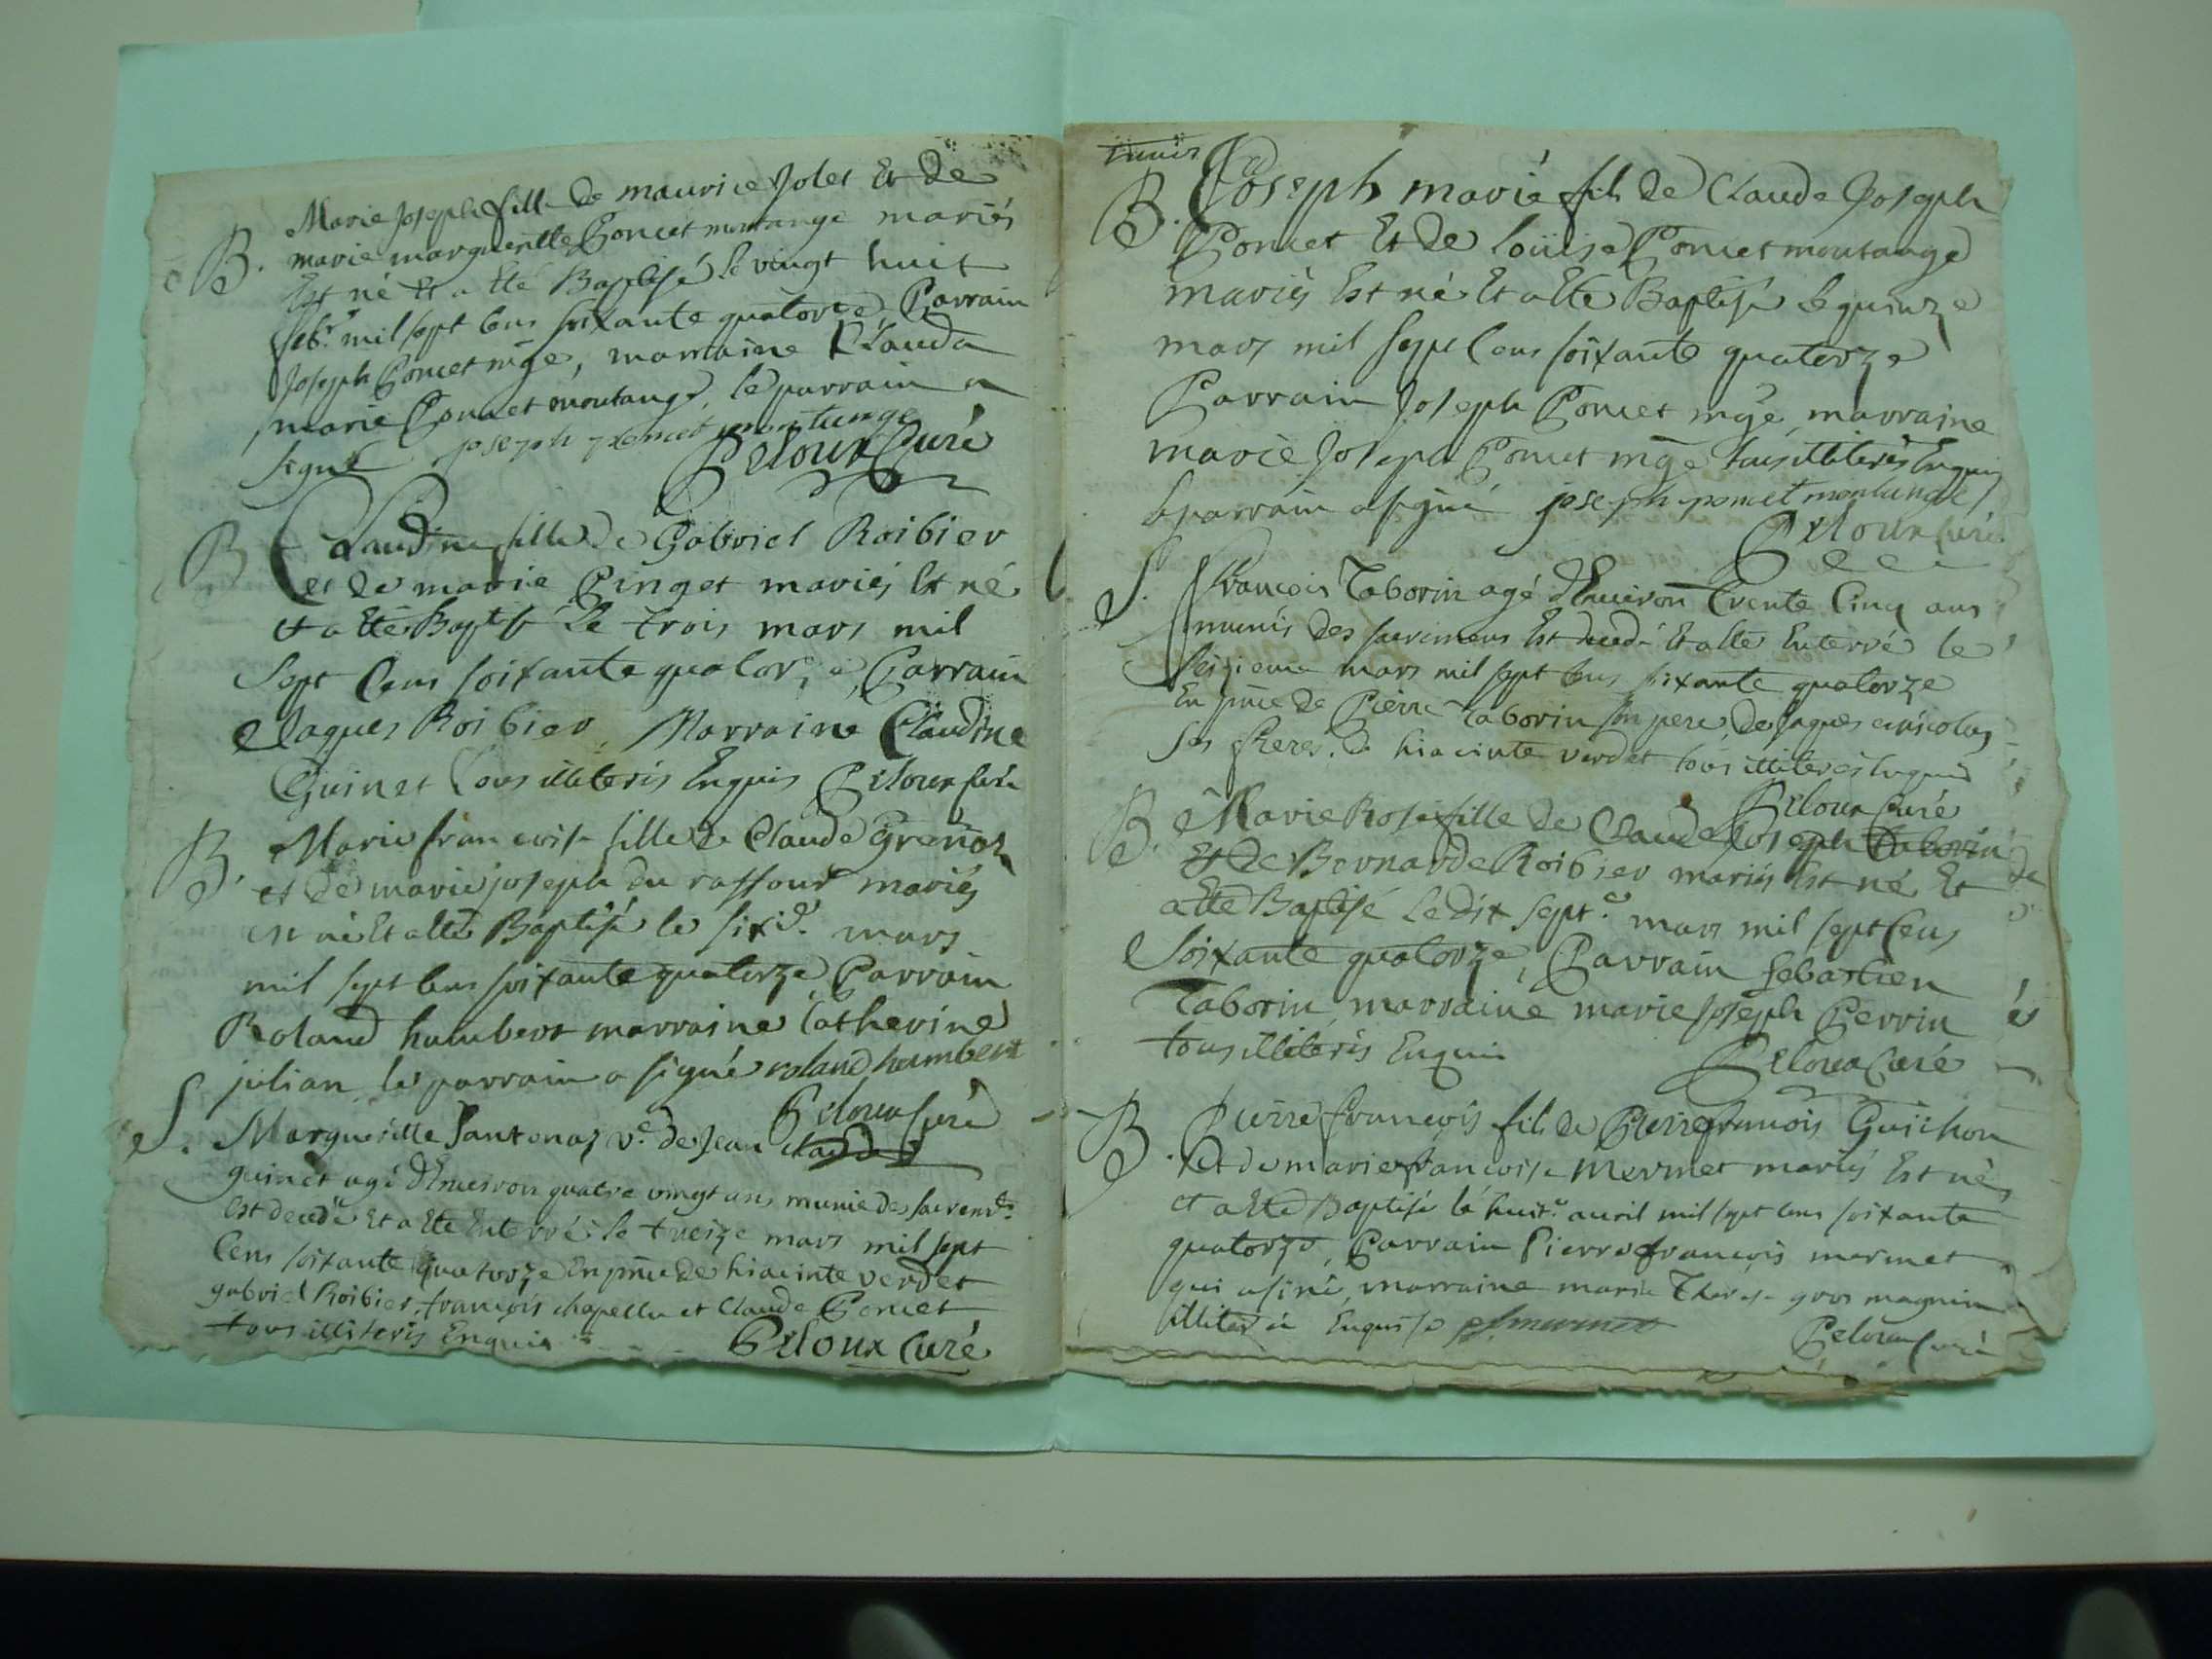 B. Marie Joseph fille de maurice Jolet Et de
marie margueritte Poncet montange mariés
Est né Et a Eté Baptisé le vingt huit
febr. mil sept Cens soixante quatorze, Parrain
Joseph Poncet mge, marraine Clauda
marie Poncet montange, le parrain a
signé joseph poncet montange
Peloux Curé
B Claudine fille de Gabriel Roibier
et de marie Pinget mariés Est né
Et a Eté Baptisé le trois mars mil
Sept Cens soixante quatorze, Parrain
Jaques Roibier, Marraine Claudine
Guinet tous illiterés Enquis Peloux Curé
B. Marie francoise fille de Claude Grenoz
et de marie joseph du raffour mariés
est né Et a Eté Baptisé le sixe. mars
mil sept Cens soixante quatorze, Parrain
Roland humbert marraine Catherine
julian, le parrain a signé roland humbert
Peloux Curé
S. Margueritte Santonaz ve. de Jean Claude
guinet agé d'Environ quatre vingt ans munie des sacremts.
Est decedé Et a Eté Enterré le treize mars mil sept
Cens soixante quatorze En pnce de hiacinte verdet
gabriel Roibier, françois chapellu et Claude Poncet
tous illiterés Enquis Peloux Curé
B. Joseph marie fils de Claude Joseph
Poncet Et de Loüise Poncet montange
mariés Est né Et a Eté Baptisé le quinze
mars mil sept Cens soixante quatorze
Parrain Joseph Poncet mge, marraine
marie Joseph Poncet mge tous illiterés Enquis
le parrain a signé joseph poncet montange
Peloux Curé
S. François Taborin agé d'Environ trente Cinq ans
munis des sacremens Est decedé Et a Eté Enterré le
seizieme mars mil sept Cens soixante quatorze
En pnce de Pierre Taborin son pere, de Jaques et nicolas
ses freres, de hiacinte verdet tous illiterés Enquis
Peloux Curé
B. Marie Rose fille de Claude Joseph Taborin
Et de Bernarde Roibier mariés Est né Et
a Eté Baptisé le dix septe. mars mil sept Cens
Soixante quatorze, Parrain Sebastien
Taborin, marraine marie Joseph Perrin
tous illiterés Enquis Peloux Curé
B. Pierre françois fils de Pierre françois Guichon
Et de marie francoise Mermet mariés Est né
et a Eté Baptisé le huite. avril mil sept Cens soixante
quatorze, Parrain Pierre françois mermet
qui a siné, marraine marie Therese gros magnin
illiterée Enquise pfmermet
Peloux Curé